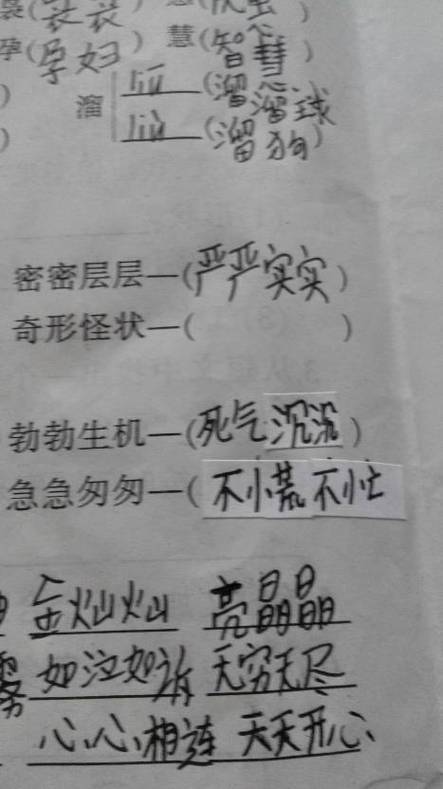 裳(衣裳)
孕(孕妇) 慧(智慧)
溜 liū (溜溜球
liù (溜狗)
密密层层—(严严实实)
奇形怪状—( )
勃勃生机—(死气沉沉)
急急匆匆—(不小慌不小忙
金灿灿 亮晶晶
如泣如诉 无穷无尽
心心相连 天天开心